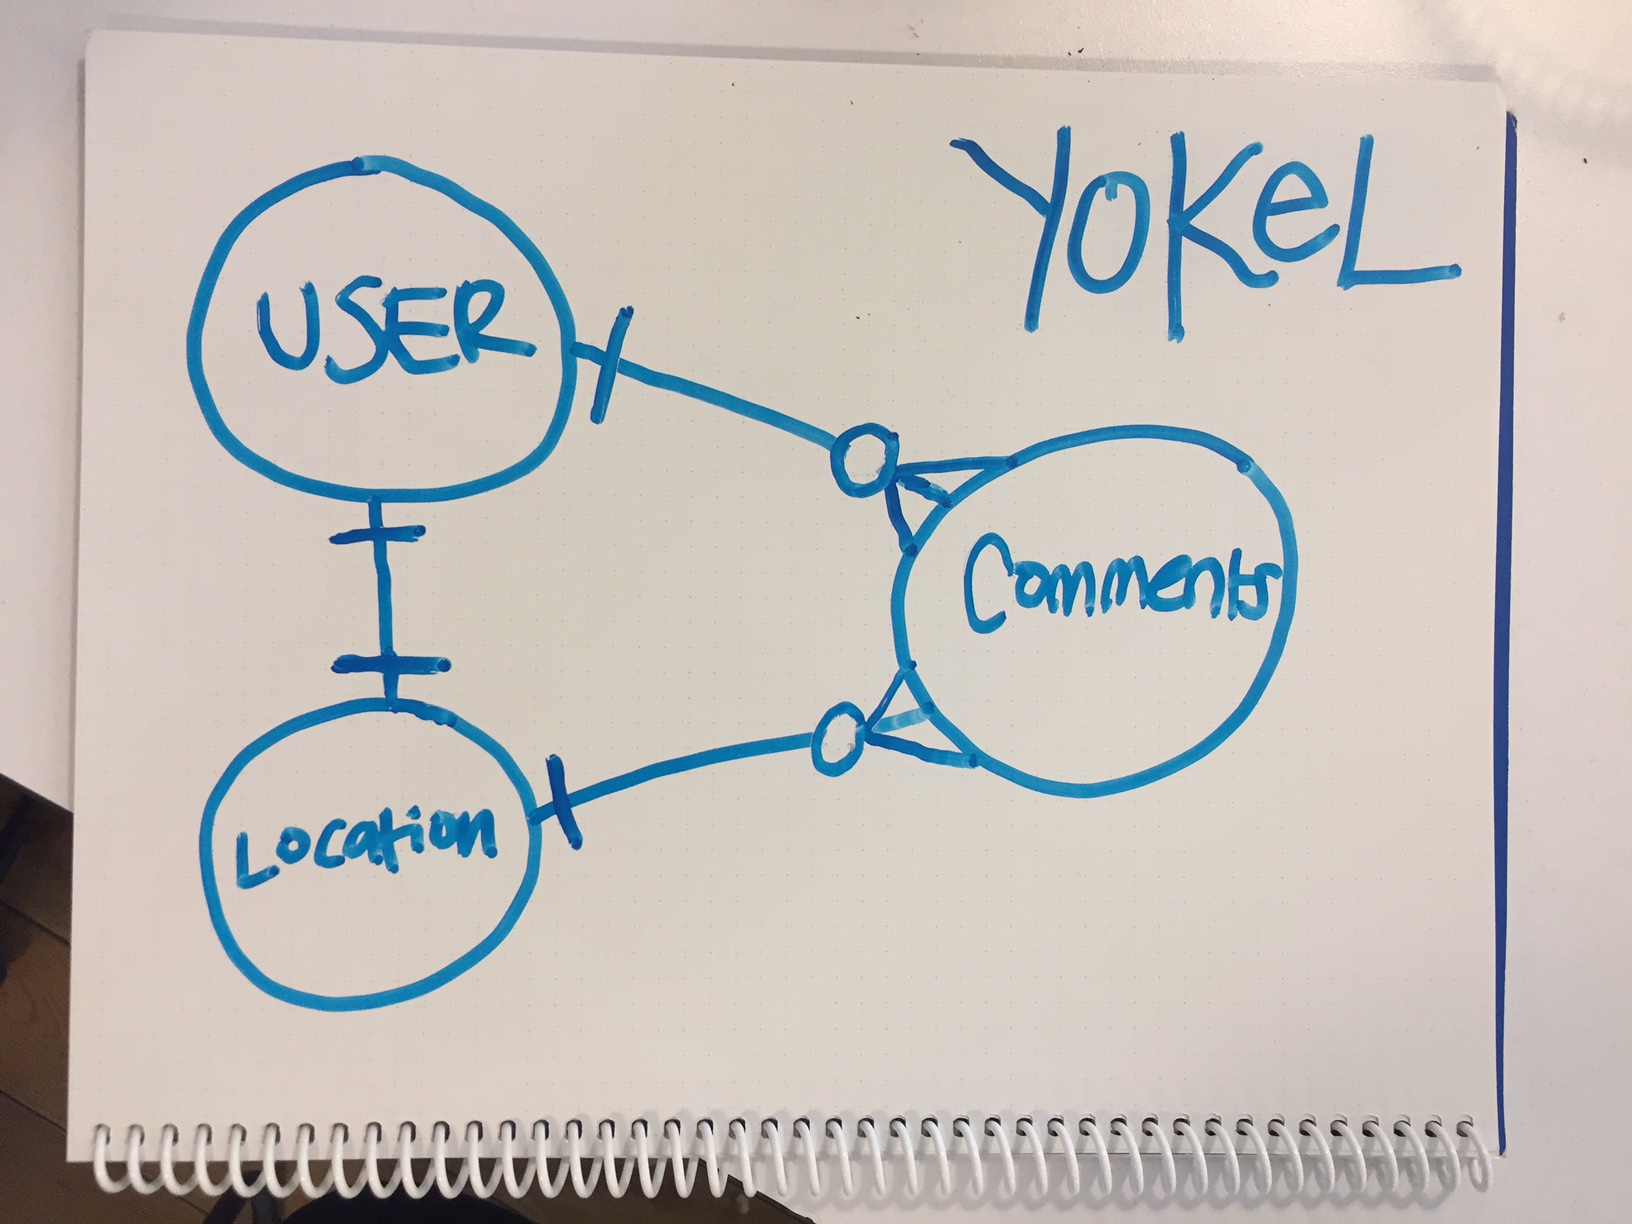 YOKeL
USER
Comments
Location